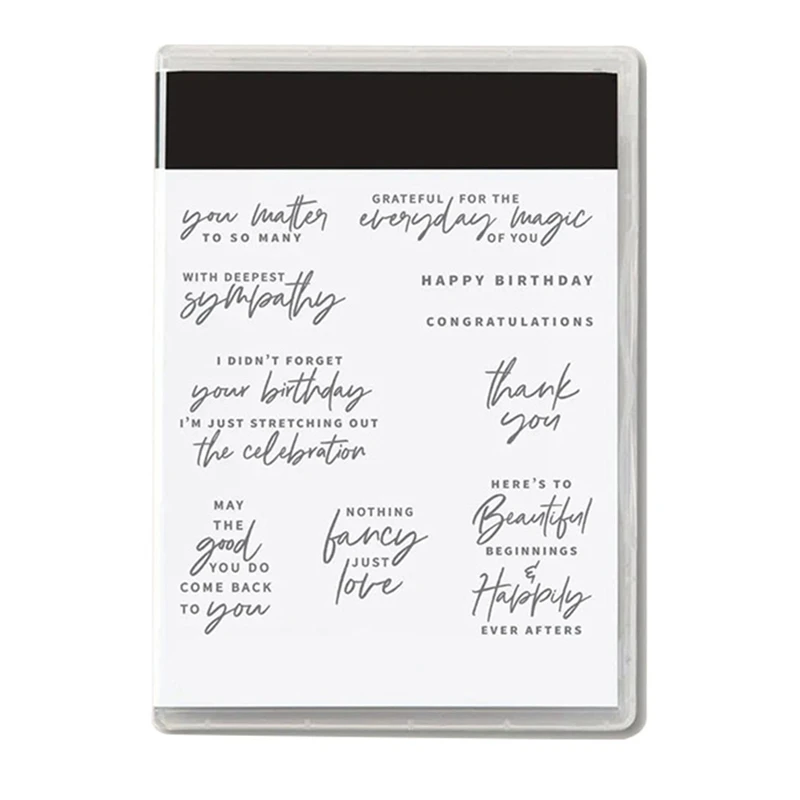 you matter
TO SO MANY
GRATEFUL FOR THE
everyday magic
OF YOU
WITH DEEPEST
sympathy
HAPPY BIRTHDAY
CONGRATULATIONS
I DIDN'T FORGET
your birthday
I'M JUST STRETCHING OUT
the celebration
thank
you
MAY
THE
good
YOU DO
COME BACK
TO you
NOTHING
fancy
JUST
love
HERE'S TO
Beautiful
BEGINNINGS
&
Happily
EVER AFTERS